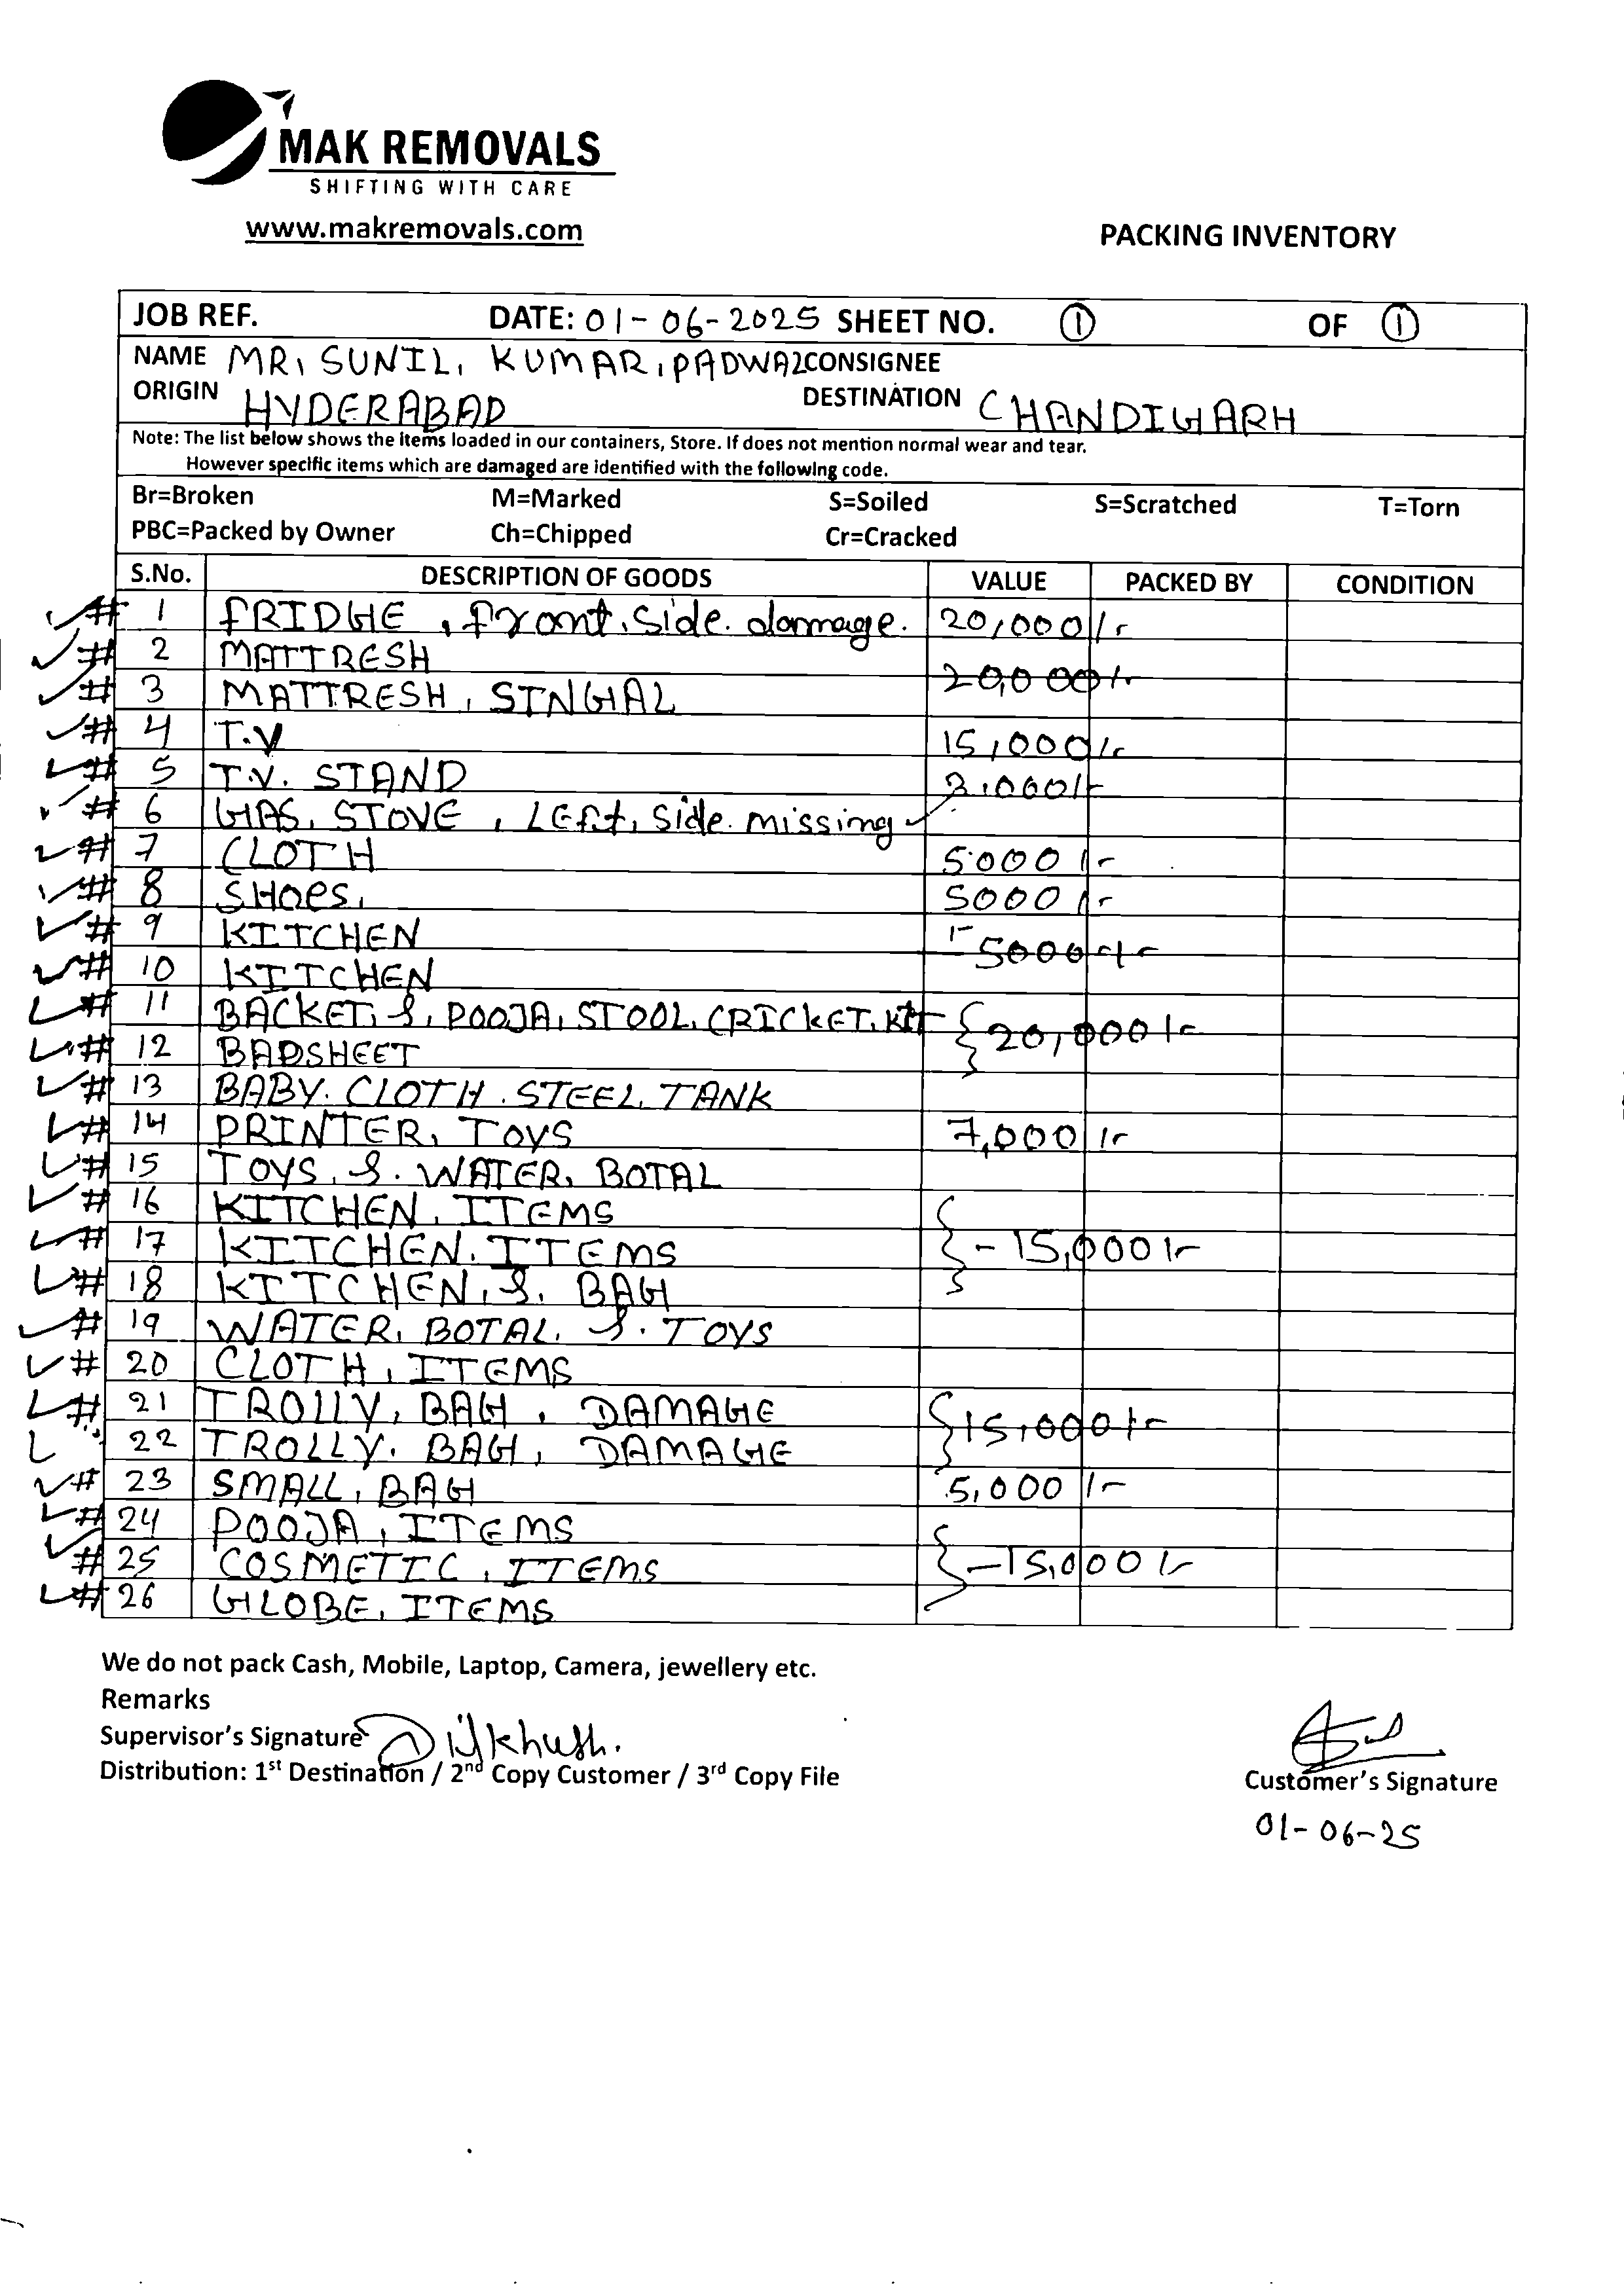 MAK REMOVALS
SHIFTING WITH CARE
www.makremovals.com
PACKING INVENTORY
JOB REF. DATE: 01-06-2025 SHEET NO. 1 OF 1
NAME MR, SUNIL, KUMAR, PADWAL CONSIGNEE
ORIGIN HYDERABAD DESTINATION CHANDIGARH
Note: The list below shows the items loaded in our containers, Store. If does not mention normal wear and tear.
However specific items which are damaged are identified with the following code.
Br=Broken M=Marked S=Soiled S=Scratched T=Torn
PBC=Packed by Owner Ch=Chipped Cr=Cracked
S.No. DESCRIPTION OF GOODS VALUE PACKED BY CONDITION
# 1 FRIDGE, front. side. damage. 20,000/-
# 2 MATTRESH
20,000/-
# 3 MATTRESH, SINGAL
# 4 T.V 15,000/-
# 5 T.V. STAND 3,000/-
# 6 GAS, STOVE, LEft, side. missing
# 7 CLOTH 5000/-
# 8 SHOES, 5000/-
# 9 KITCHEN
5000/-
# 10 KITCHEN
# 11 BACKET, &, POOJA, STOOL, CRICKET, KIT 20,000/-
# 12 BADSHEET
# 13 BABY. CLOTH. STEEL, TANK
# 14 PRINTER, TOYS 7,000/-
# 15 TOYS, &. WATER, BOTAL
# 16 KITCHEN, ITEMS
# 17 KITCHEN. ITEMS - 15,000/-
# 18 KITCHEN, &. BAG
# 19 WATER, BOTAL, &. TOYS
# 20 CLOTH, ITEMS
# 21 TROLLY, BAG, DAMAGE 15,000/-
22 TROLLY. BAG, DAMAGE
# 23 SMALL, BAG 5,000/-
# 24 POOJA, ITEMS
# 25 COSMETIC, ITEMS - 15,000/-
# 26 GLOBE, ITEMS
We do not pack Cash, Mobile, Laptop, Camera, jewellery etc.
Remarks
Supervisor's Signature Dilkhush.
Distribution: 1st Destination / 2nd Copy Customer / 3rd Copy File
Customer's Signature
01-06-25